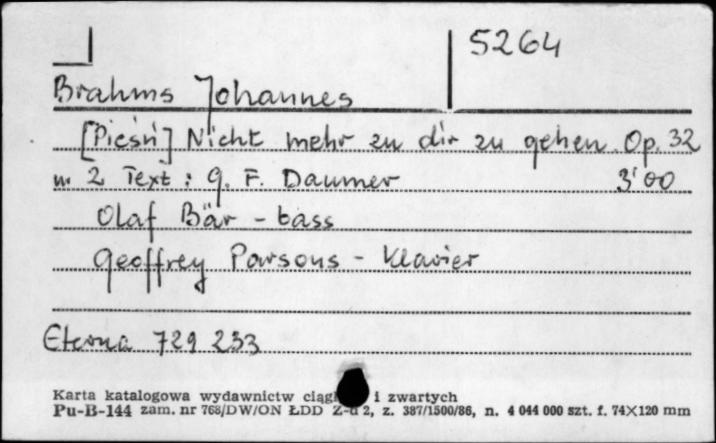 5264
Brahms Johannes
[Pieśń] Nicht mehr zu dir zu gehen Op. 32
nr 2 Text: G. F. Daumer 3'00
Olaf Bär - bass
Geoffrey Parsons - Klavier
Eterna 729 233
Karta katalogowa wydawnictw i zwartych
Pu-B-144 zam. nr 768/DW/ON ŁDD 2, z. 387/1500/86, n. 4 044 000 szt. f. 74×120 mm